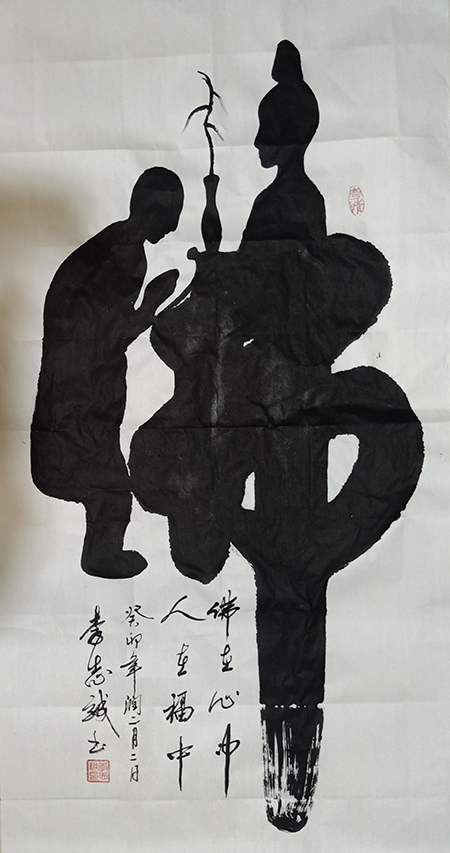 佛
佛在心中
人在福中
癸卯年润二月二日
李志誠书